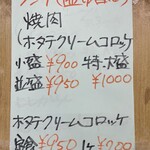 焼肉
(ホタテクリームコロッケ
小盛¥900 特大盛
並盛¥950 ¥1000
ホタテクリームコロッケ
定食¥950 1ヶ¥200